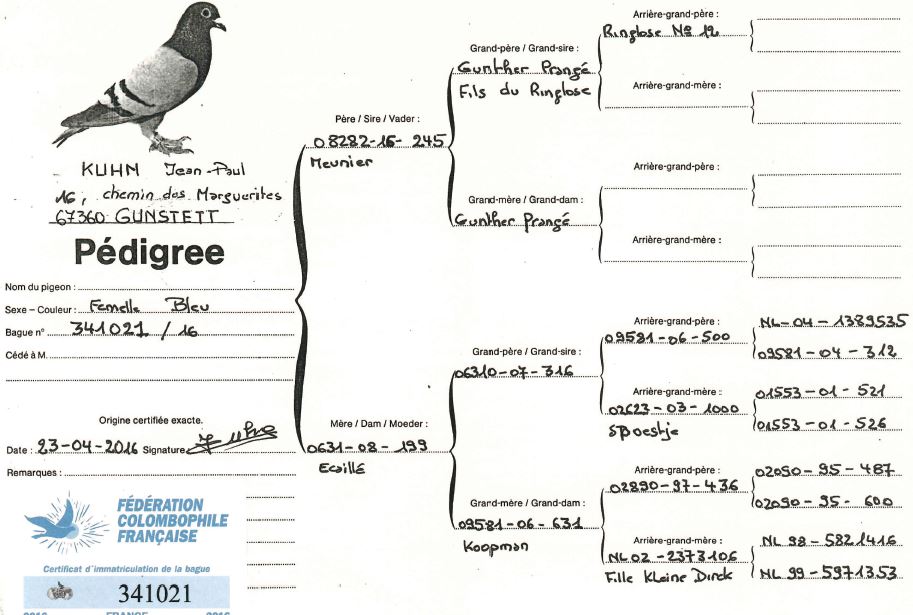 KUHN Jean-Paul
16, chemin des Marguerites
67360 GUNSTETT
Pédigree
Nom du pigeon :
Sexe – Couleur : Femelle Bleu
Bague n° 341021 / 16
Cédé à M.
Origine certifiée exacte.
Date : 23-04-2016 Signature
Remarques :
FÉDÉRATION
COLOMBOPHILE
FRANÇAISE
Certificat d'immatriculation de la bague
341021
2016 FRANCE 2016
Père / Sire / Vader :
08282-16- 245
Meunier
Mère / Dam / Moeder :
0631-08-199
Ecaillé
Grand-père / Grand-sire :
Gunther Prangé
Fils du Ringlose
Grand-mère / Grand-dam :
Gunther Prangé
Grand-père / Grand-sire :
06310-07-316
Grand-mère / Grand-dam :
09581-06-631
Koopman
Arrière-grand-père :
Ringlose No 12
Arrière-grand-mère :
Arrière-grand-père :
Arrière-grand-mère :
Arrière-grand-père :
09581-06-500
Arrière-grand-mère :
02623-03-1000
Spoestje
Arrière-grand-père :
02890-97-436
Arrière-grand-mère :
NL 02-2373106
Fille Kleine Dirck
NL-04-1389535
09581-04-312
01553-01-521
01553-01-526
02090-95-487
02090-95-600
NL 98-5821416
NL 99-5971353